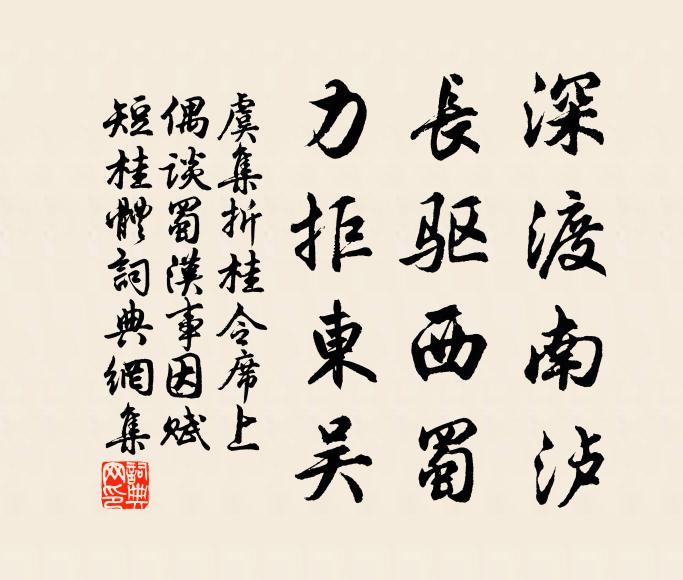 深渡南泸
長驱西蜀
力拒東吴
虞集折桂令席上
偶谈蜀漢事因赋
短柱體詞典網集
詞典
网印